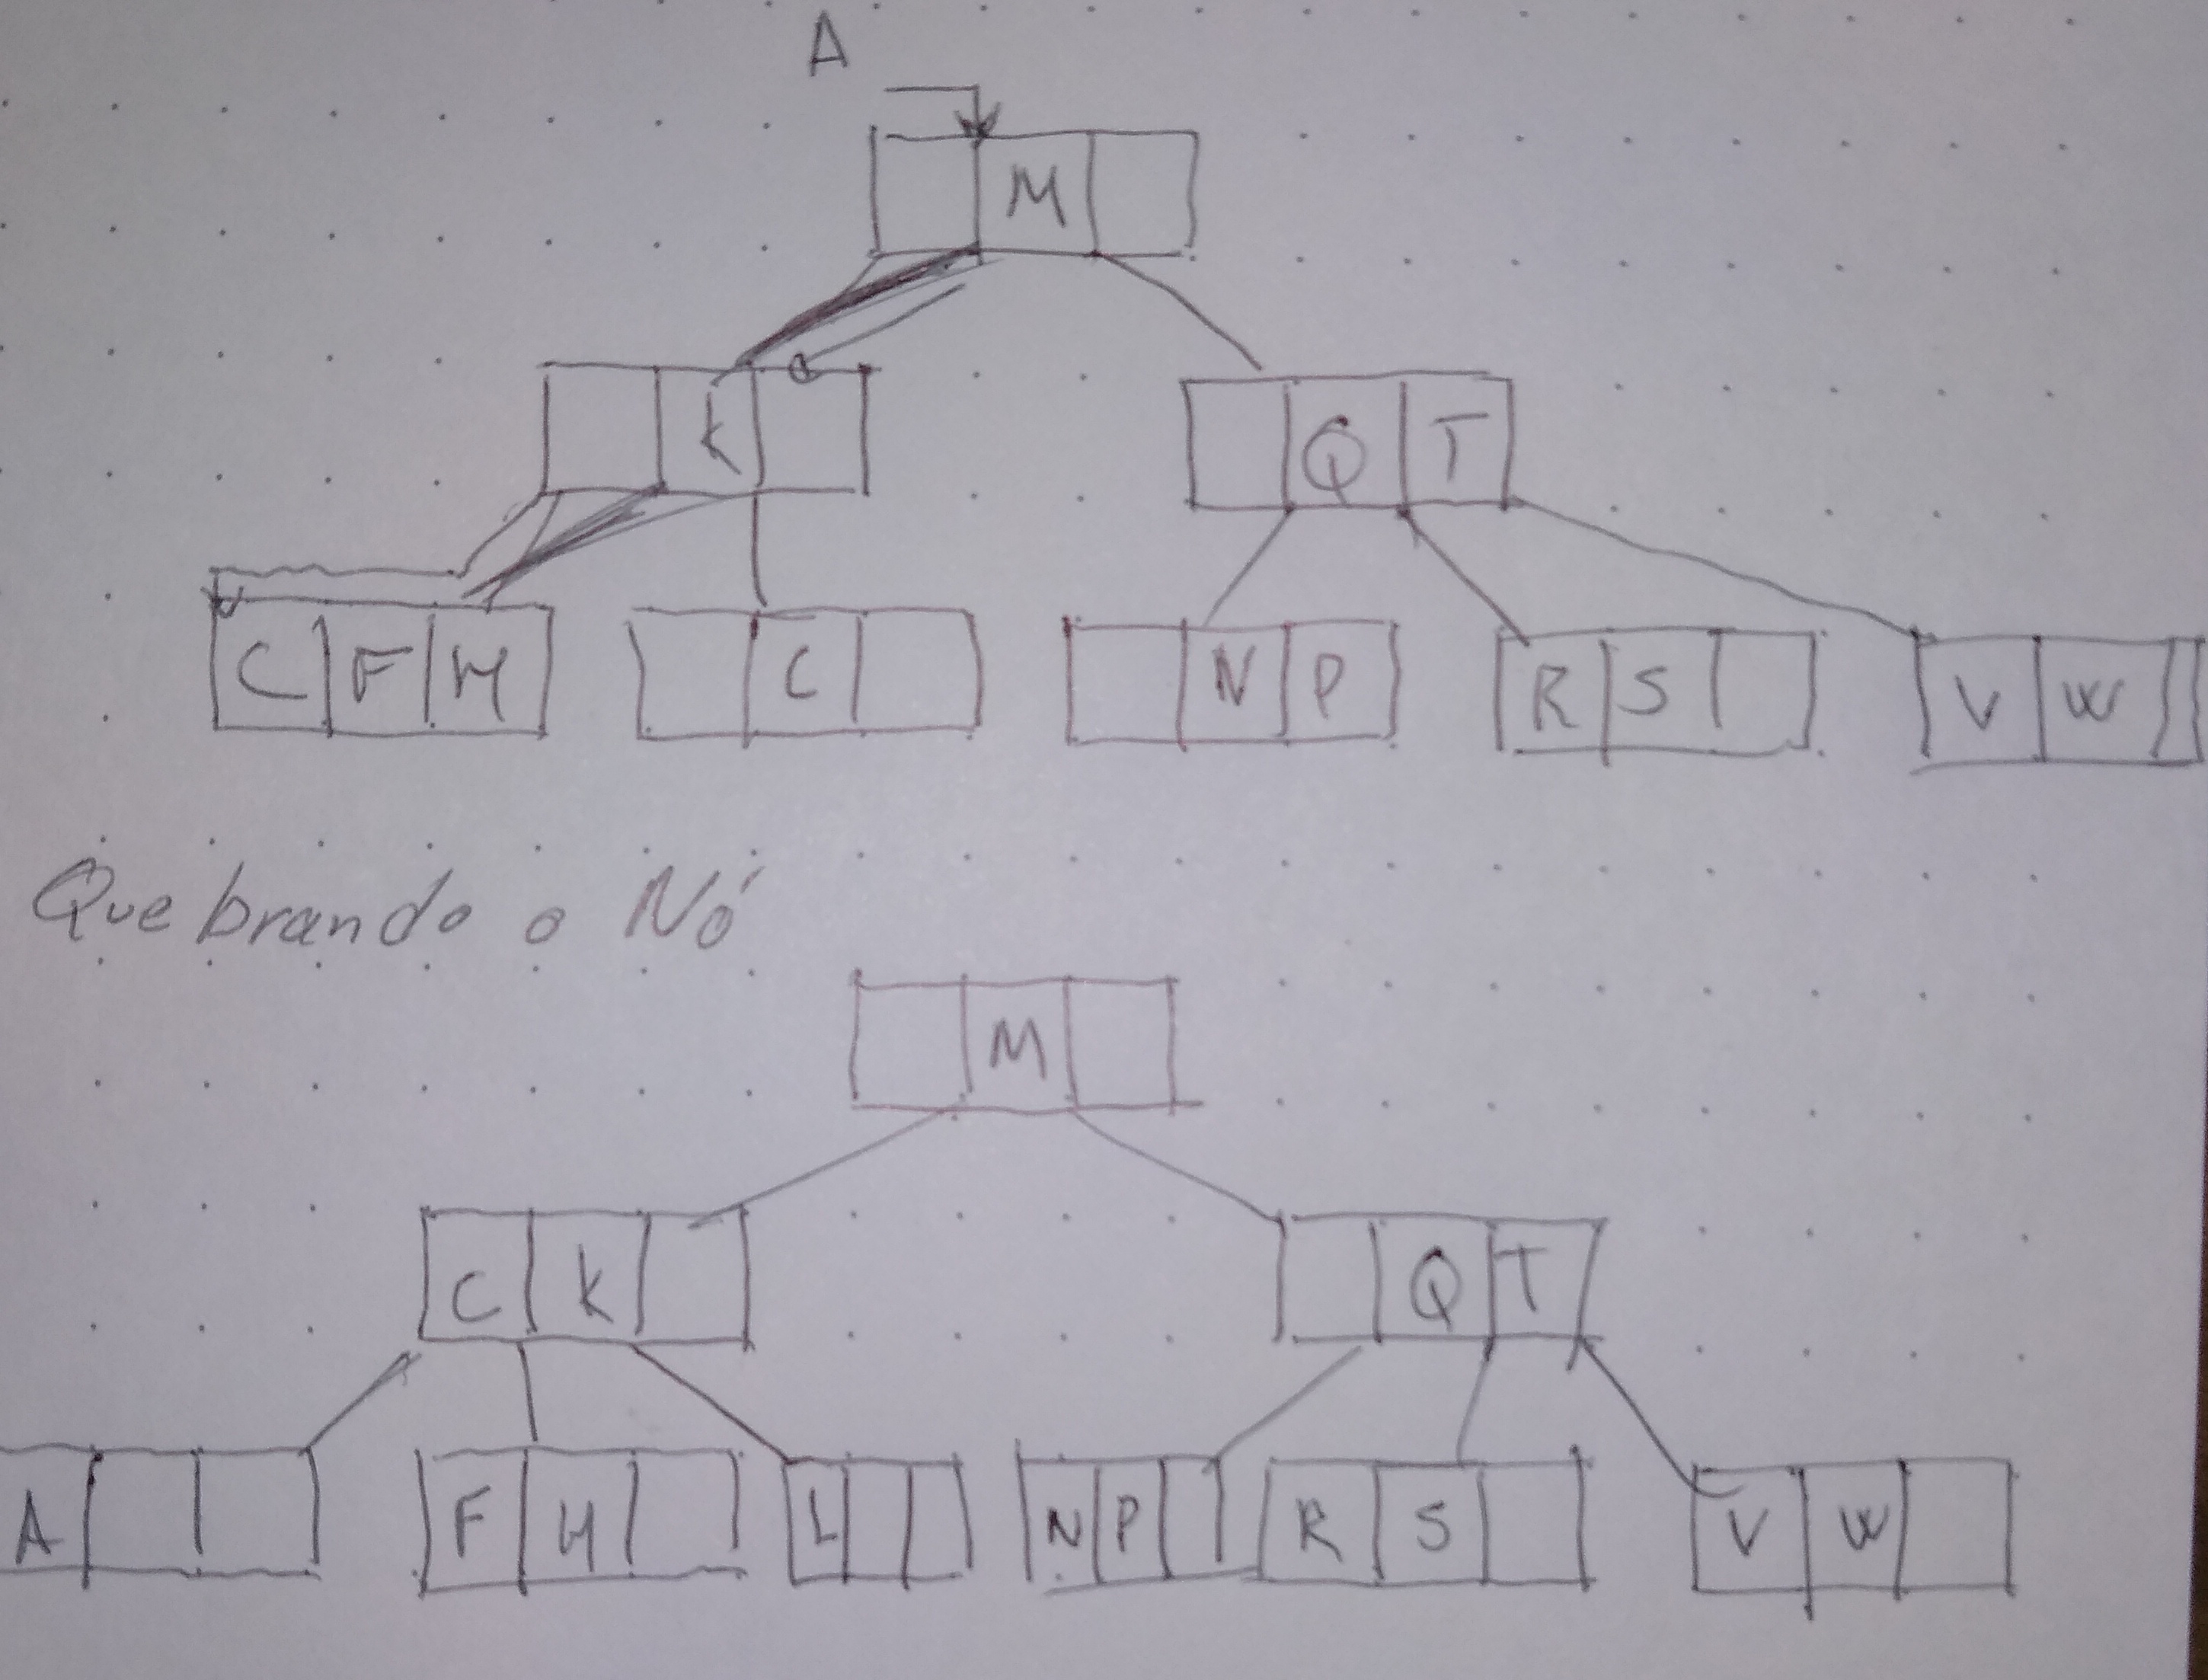 A
M
K Q T
C F H C N P R S V W
Quebrando o Nó
M
C K Q T
A F H L N P R S V W